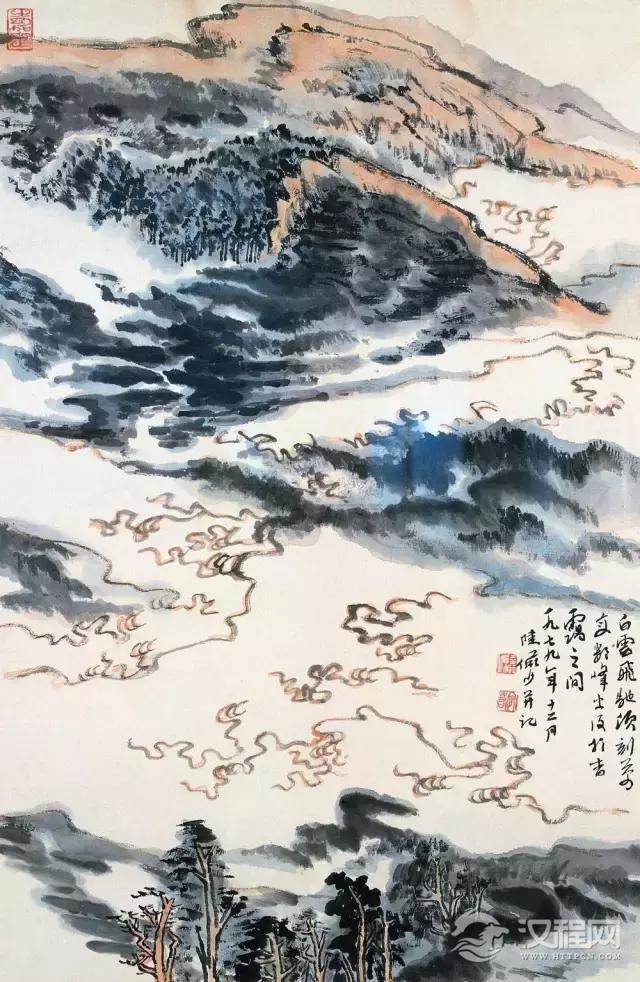 白雲飛馳頃刻萬
变峰出没於杳
靄之间
一九七九年十二月
陸儼少并记
汉程网
WWW.HTTPCN.COM